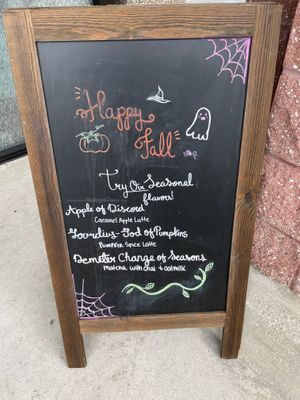 Happy
Fall
Try Our Seasonal
flavors!
Apple of Discord
Caramel Apple Latte
Gourdius - God of Pumpkins
Pumpkin Spice Latte
Demeter Change of Seasons
Matcha with chai + oatmilk